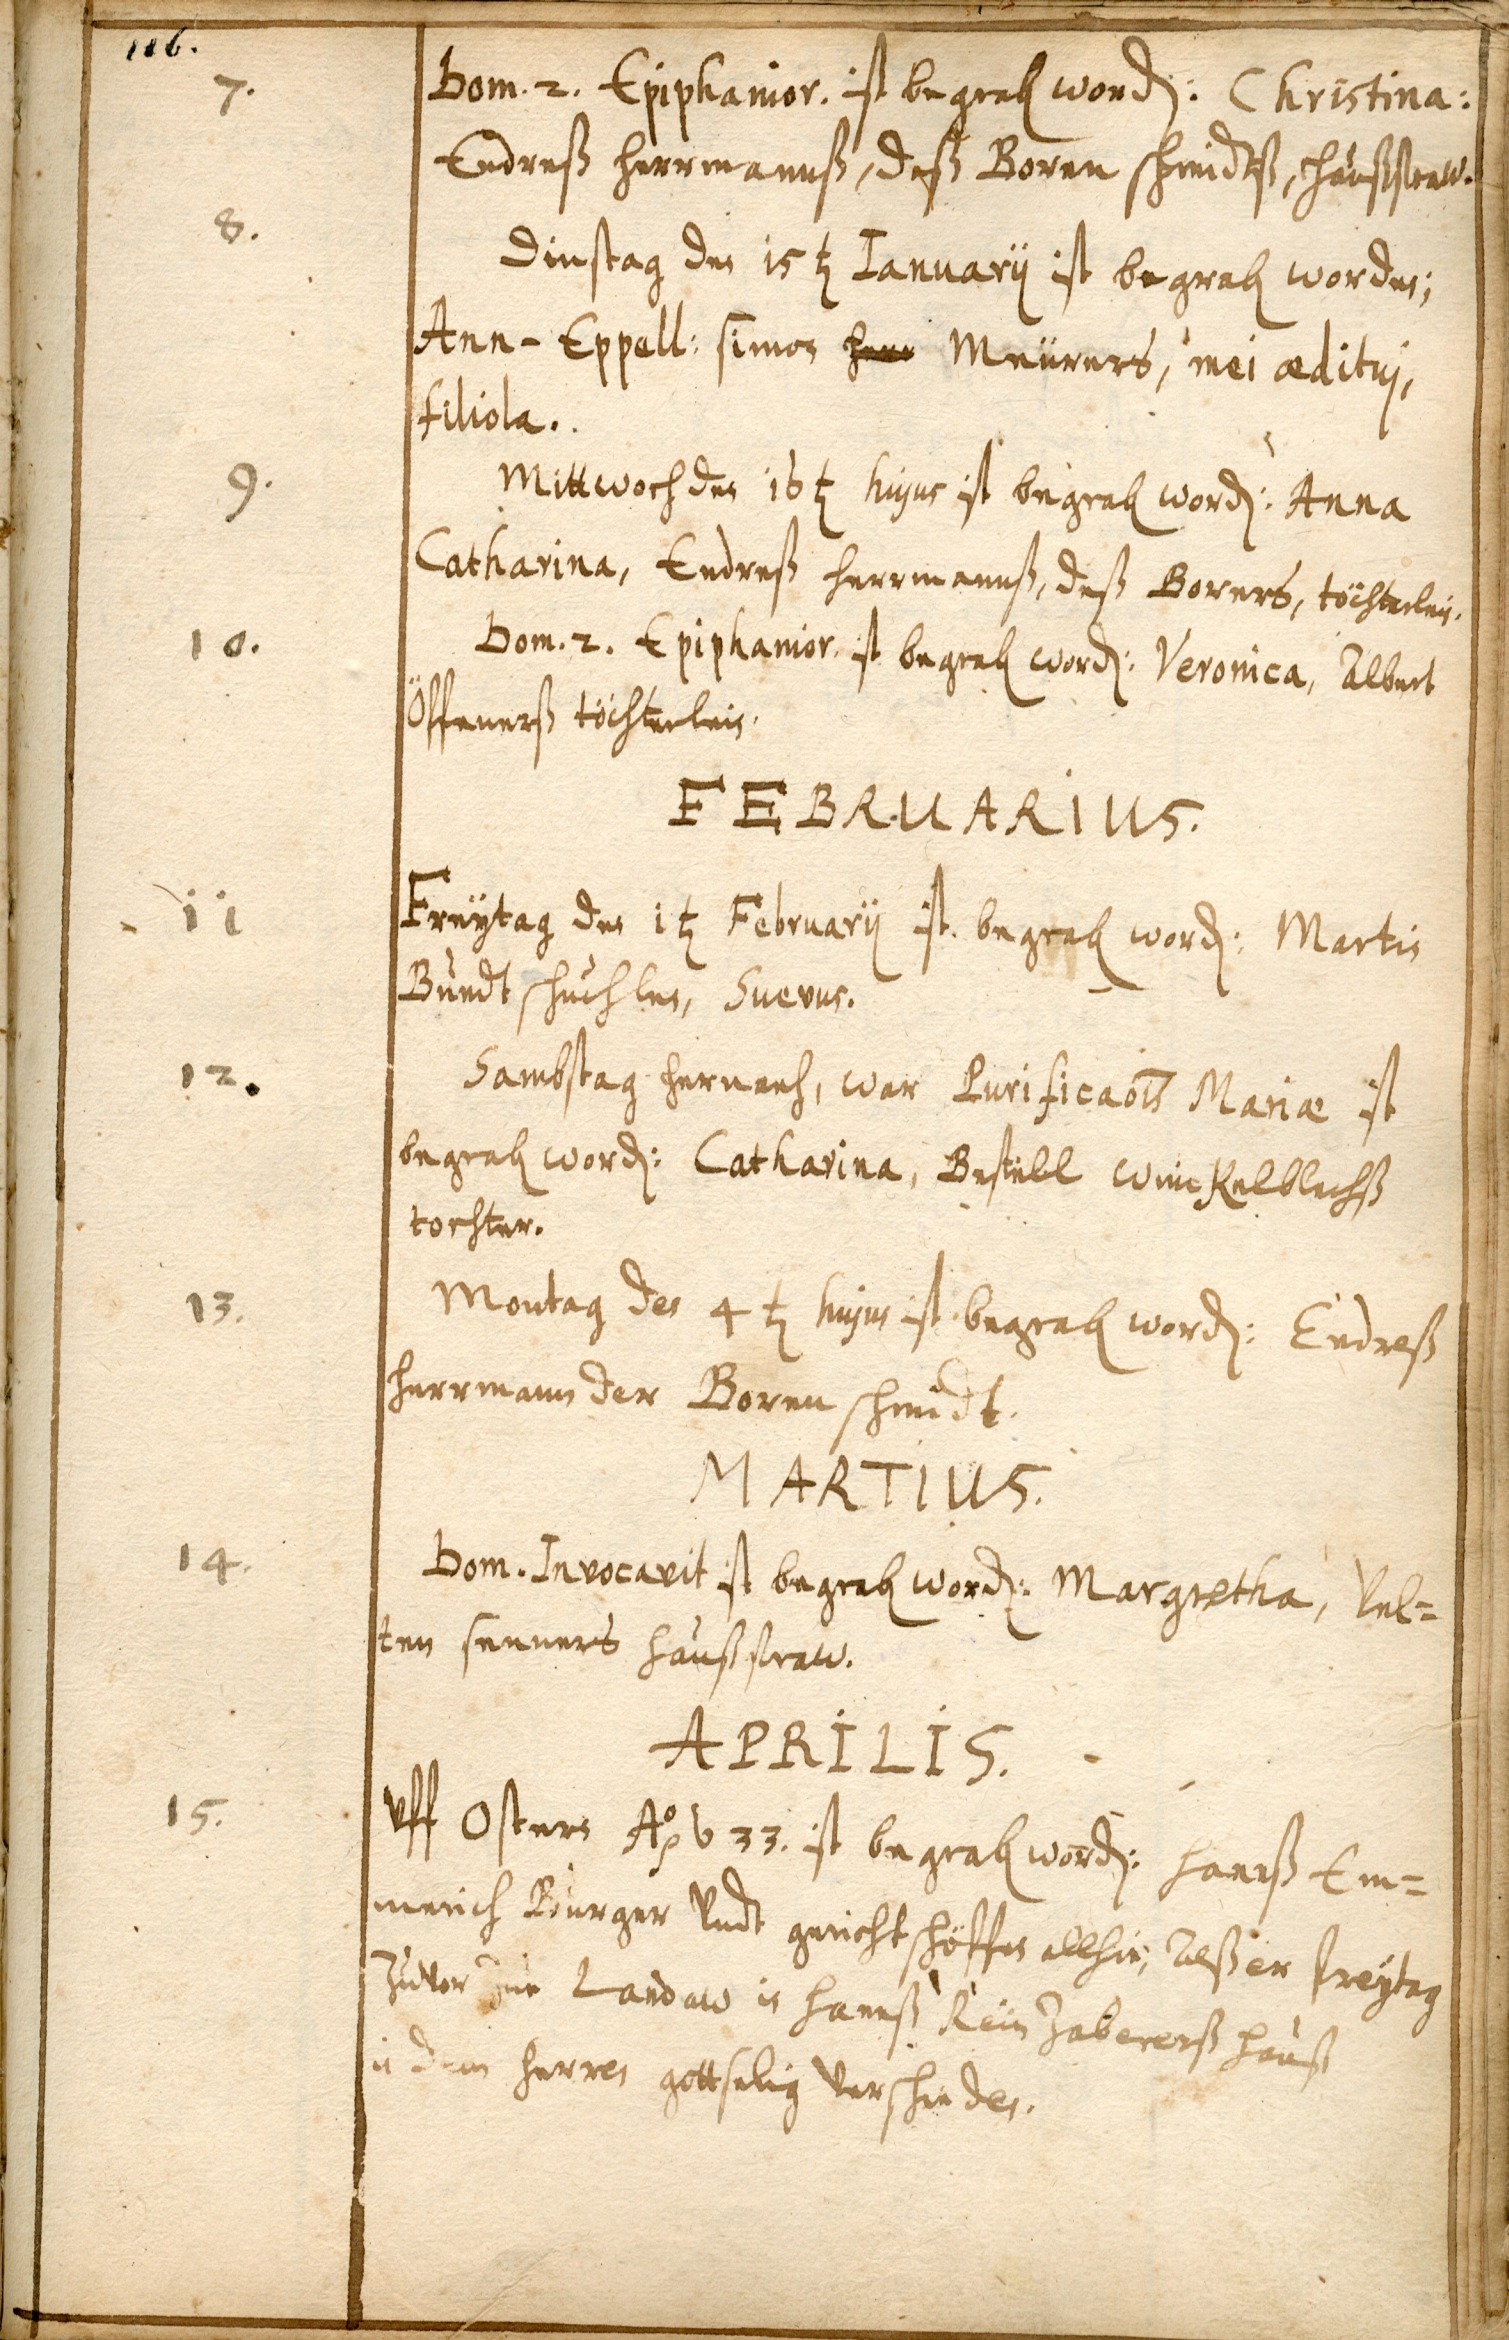 116.
7. Dom. 2. Epiphanior. ist begrab word: Christina:
Endreß Herrmannß, deß Boren schmidtß, haußfraw.
8. Dinstag den 15 tz Ianuarij ist begrab worden;
Ann-Eppell: Simon Meürers, mei æditui,
filiola.
9. Mittwoch den 16 tz hujus ist begrab word: Anna
Catharina, Endreß Herrmannß, deß Borers, töchterlein.
10. Dom. 2. Epiphanior. ist begrab word: Veronica, Albert
Öffenerß töchterlein.
FEBRUARIUS.
11 Freÿtag den 1 tz Februarij ist begrab word: Martin
Bundtschuchlen, Suevus.
12. Sambstag hernach, war Purificaõis Mariæ ist
begrab word: Catharina, Bestell Winckelblechß
tochter.
13. Montag den 4 tz hujus ist begrab word: Endreß
Herrmann der Boren schmidt.
MARTIUS.
14. Dom. Invocavit ist begrab word: Margretha, Vel=
ten Senners haußfraw.
APRILIS.
15. Vff Ostern Aº 33. ist begrab word: Hanß Em=
merich Burger Vndt gericht schöffen allhie, Alß er freÿtag
Zuvor zue Landaw in Hanß Rein Zabererß Hauß
in dem Herren gottselig Verschieden.